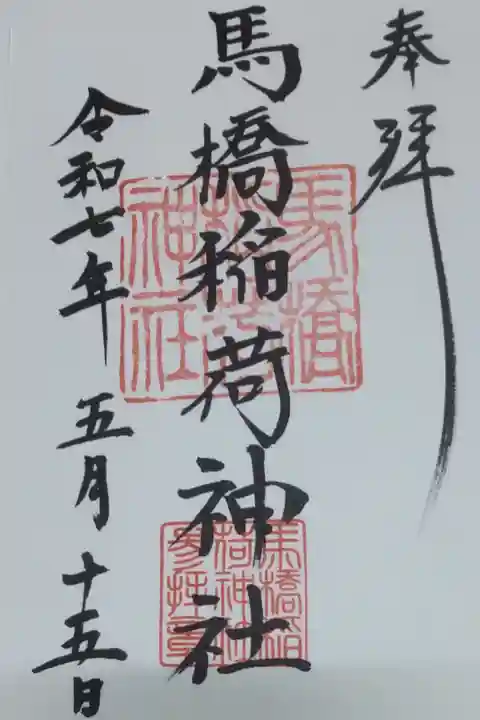 奉拜
馬橋稲荷神社
令和七年 五月 十五日
馬橋
稲荷
神社
馬橋稲
荷神社